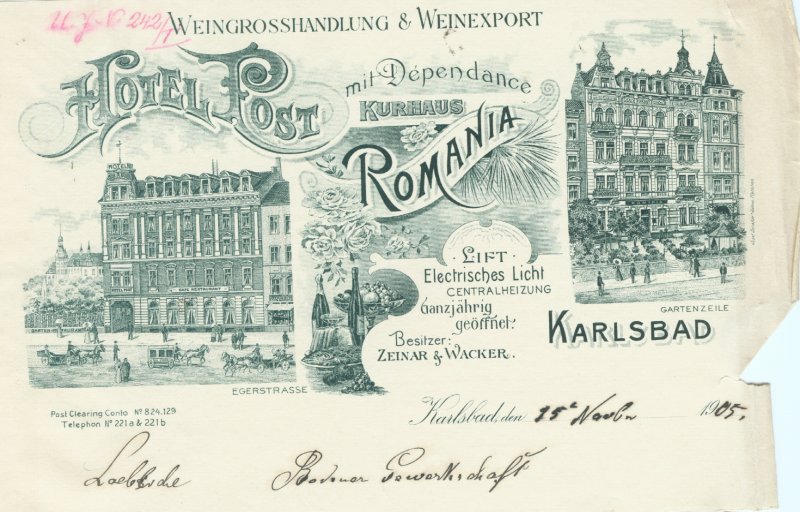 WEINGROSSHANDLUNG & WEINEXPORT
HOTEL POST
mit Dépendance
KURHAUS
ROMANIA
HOTEL
CAFE RESTAURANT
LIFT
Electrisches Licht
CENTRALHEIZUNG
Ganzjährig
geöffnet.
Besitzer:
ZEINAR & WACKER.
EGERSTRASSE
GARTENZEILE
KARLSBAD
Post Clearing Conto Nº 824.129
Telephon Nº 221a & 221b
Karlsbad, den 15 1905.
Gewerkschaft